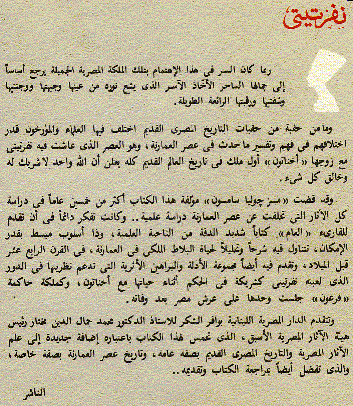 نفرتيتى
ربما كان السر فى هذا الإهتمام بتلك الملكة المصرية الجميلة يرجع أساساً
إلى جمالها الساحر الأخاذ الآسر الذى يشع نوره من عينها وجبينها ووجنتها
وشفتها ورقبتها الرائعة الطويلة.
وما من حقبة من حقبات التاريخ المصرى القديم اختلف فيها العلماء والمؤرخون قدر
اختلافهم فى فهم وتفسير ما حدث فى عصر العمارنة، وهو العصر الذى عاشت فيه نفرتيتى
مع زوجها «أخناتون» أول ملك فى تاريخ العالم القديم كله يعلن أن الله واحد لا شريك له
وخالق كل شىء.
وقد قضت «مسز جوليا سامسون» مؤلفة هذا الكتاب أكثر من خمسين عاماً فى دراسة
كل الآثار التى تخلفت عن عصر العمارنة دراسة علمية.. وكانت تفكر دائماً فى أن تقدم
للقارىء «العام» كتاباً شديد الدقة من الناحية العلمية، وذا أسلوب مبسط بقدر
الإمكان، تتناول فيه شرحاً وتحليلاً لحياة البلاط الملكى فى العمارنة، فى القرن الرابع عشر
قبل الميلاد، وتقدم فيه أيضاً مجموعة الأدلة والبراهين الأثرية التى تدعم نظريتها فى الدور
الذى لعبته نفرتيتى كشريكة فى الحكم أثناء حياتها مع أخناتون، وكملكة حاكمة
«فرعون» جلست وحدها على عرش مصر بعد وفاته.
وتتقدم الدار المصرية اللبنانية بوافر الشكر للاستاذ الدكتور محمد جمال الدين مختار رئيس
هيئة الآثار المصرية الأسبق، الذى تحمس لهذا الكتاب باعتباره إضافة جديدة إلى علم
الآثار المصرية والتاريخ المصرى القديم بصفه عامه، وتاريخ عصر العمارنة بصفة خاصة،
والذى تفضل أيضاً بمراجعة الكتاب وتقديمه..
الناشر